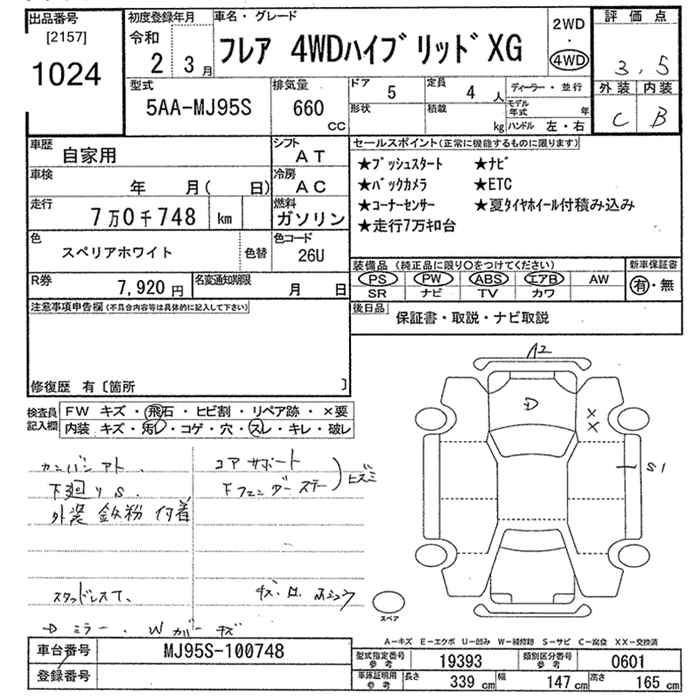 出品番号
[2157]
1024
初度登録年月
令和
2 3月
車名・グレード
フレア 4WDハイブリッドXG
2WD
・
4WD
評価点
3.5
外装 内装
C B
型式
5AA-MJ95S
排気量
660
CC
ドア 5
定員 4 人
形状
積載 kg
ディーラー・並行
モデル年式 年
ハンドル 左・右
車歴
自家用
シフト
AT
車検
年 月( 日)
冷房
AC
走行
7万0千748 km
燃料
ガソリン
色
スペリアホワイト
色替
色コード
26U
R券
7,920円
名変通知期限
月 日
セールスポイント(正常に機能するものに限ります)
★プッシュスタート ★ナビ
★バックカメラ ★ETC
★コーナーセンサー ★夏タイヤホイール付積み込み
★走行7万キロ台
装備品 (純正品に限り〇をつけてください)
PS PW ABS エアB AW
SR ナビ TV カワ
新車保証書
有・無
後日品
保証書・取説・ナビ取説
注意事項申告欄(不具合内容等は具体的に記入して下さい)
修復歴 有〔箇所 〕
検査員記入欄
FW キズ・飛石・ヒビ割・リペア跡・×要
内装 キズ・汚レ・コゲ・穴・スレ・キレ・破レ
カンバンアト.
下廻りS.
外装 鉄粉付着
コアサポート
下フェンダーステー
ヒズミ
スタッドレスT.
→ミラー. Wガードキズ
A2
D
×
×
S1
スペア
A-キズ E-エクボ U-凹み W-補修跡 S-サビ C-腐食 XX-交換済
車台番号
MJ95S-100748
登録番号
型式指定番号
参考
19393
類別区分番号
参考
0601
車庫証明用
参考
長さ 339 cm
幅 147 cm
高さ 165 cm